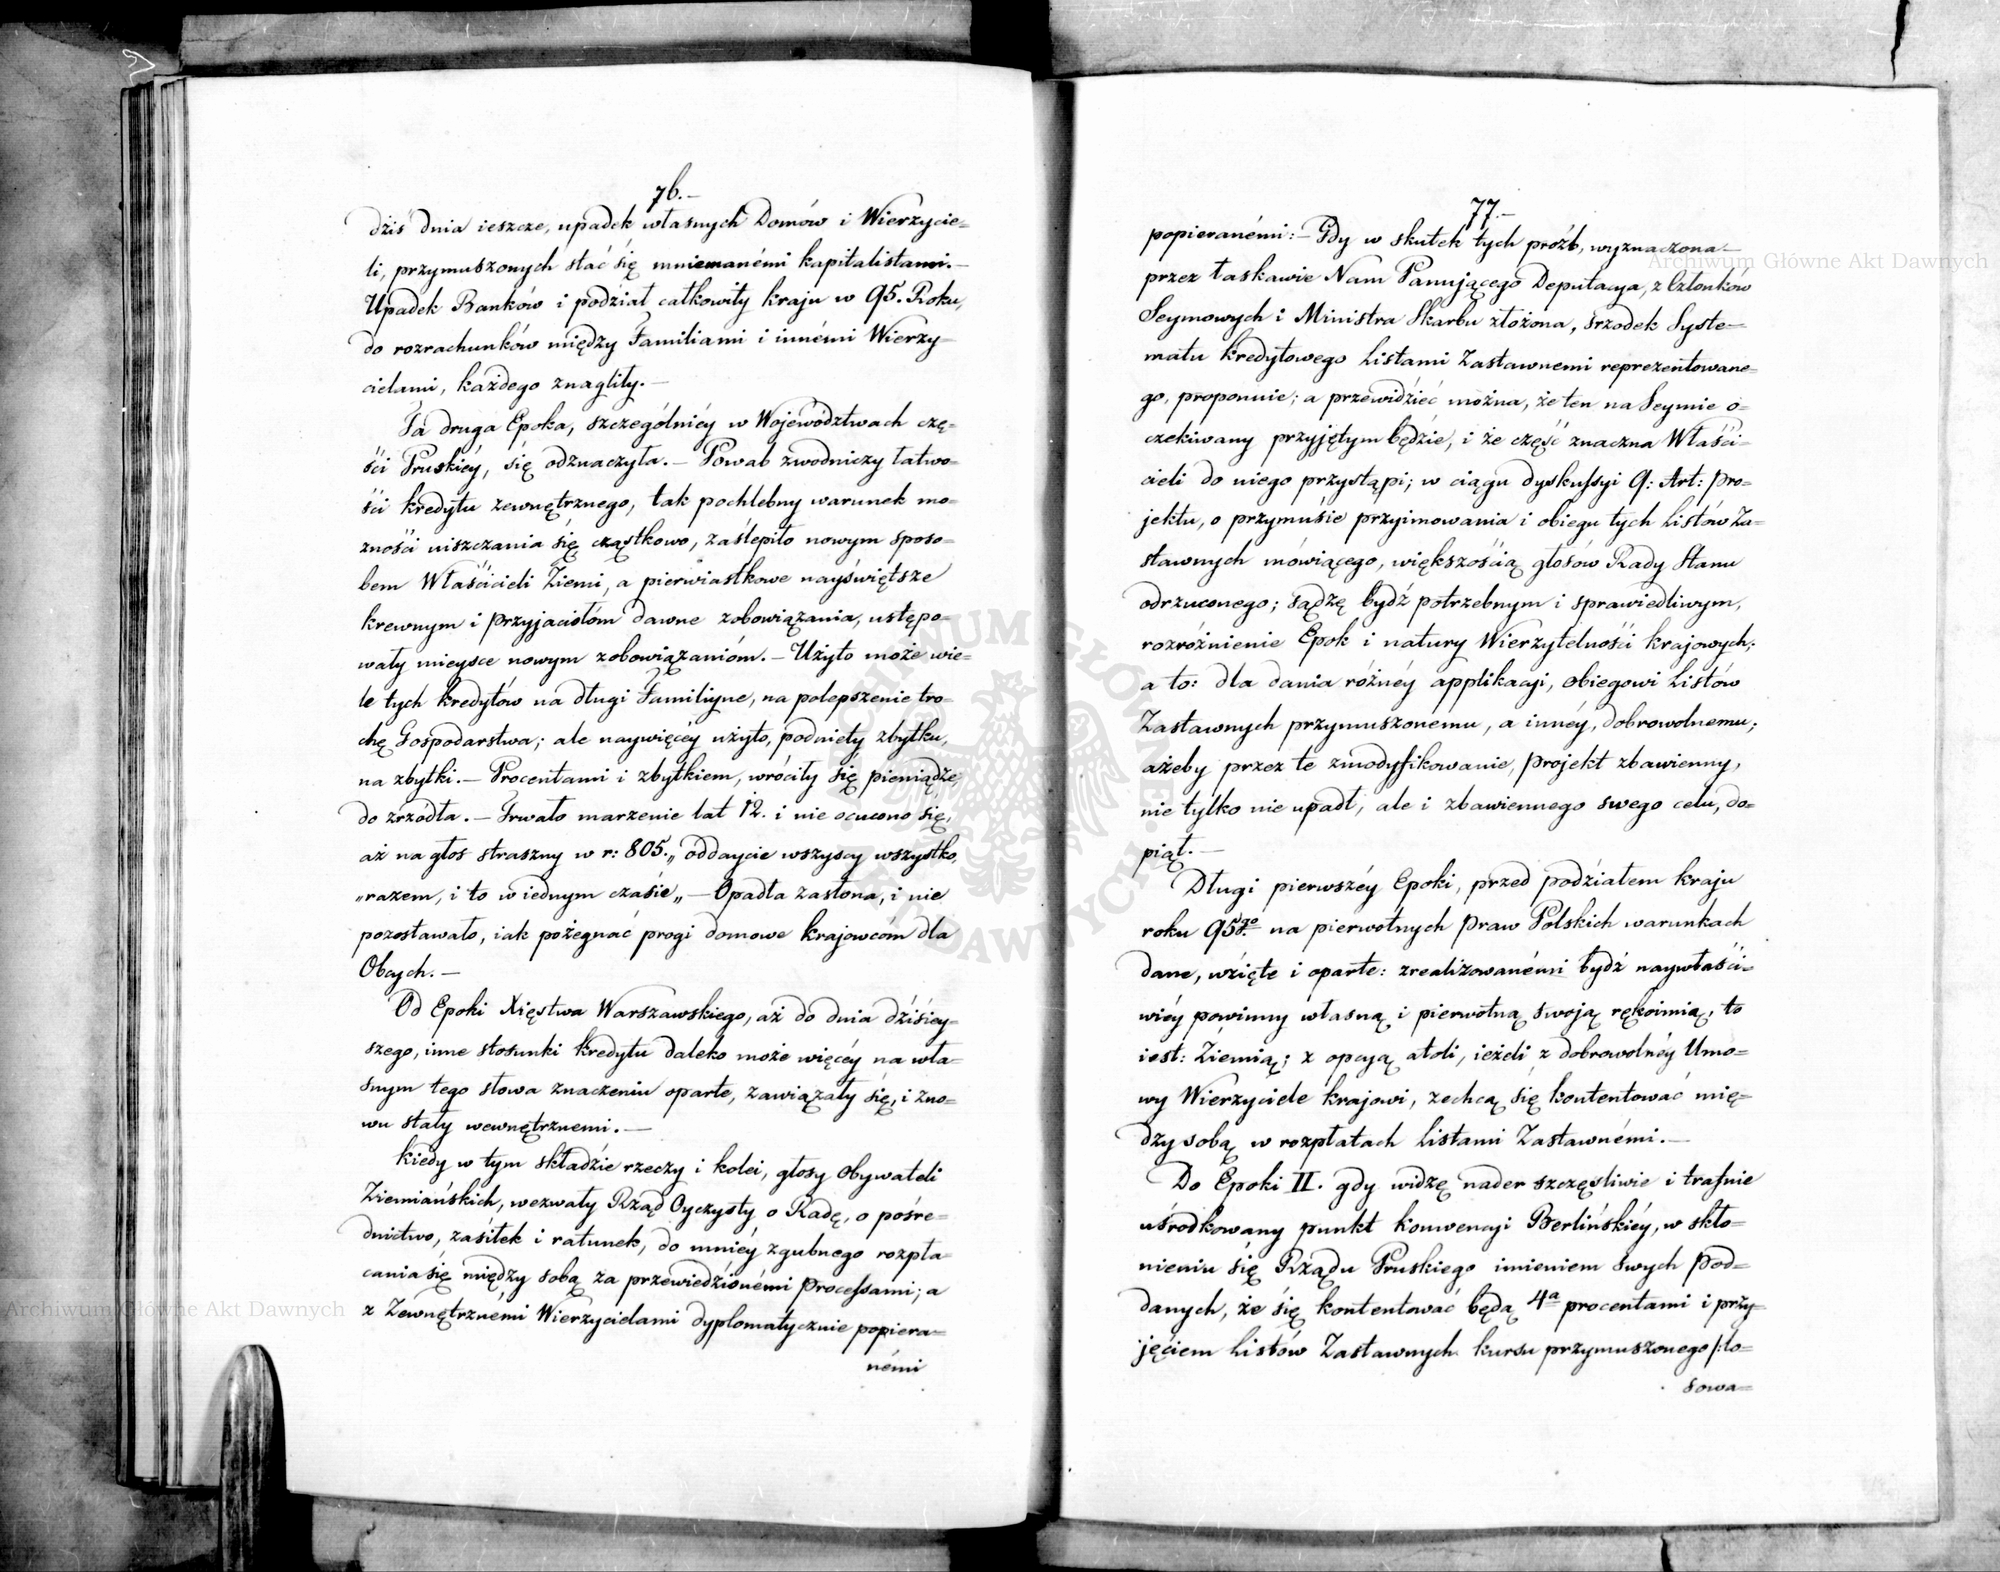 76.—
dziś dnia ieszcze, upadek własnych Domów i Wierzycie=
li, przymuszonych stać się mniemanémi kapitalistami.—
Upadek Banków i podział całkowity kraju w 95. Roku,
do rozrachunków między Familiami i innémi Wierzy=
cielami, każdego znagliły.—
Ta druga Epoka, szczególniéy w Województwach czę=
ści Pruskiéy, się odznaczyła.— Powab zwodniczy łatwo=
ści kredytu zewnętrznego, tak pochlebny warunek mo=
żności uiszczania się cząstkowo, zaślepiło nowym sposo=
bem Właścicieli Ziemi, a pierwiastkowe nayświętsze
krewnym i przyjaciołóm dawne zobowiązania, ustępo=
wały mieysce nowym zobowiązanióm.— Użyto może wie=
le tych kredytów na długi Familiyne, na polepszenie tro=
chę Gospodarstwa; ale naywięcéy użyto, podniety zbytku,
na zbytki.— Procentami i zbytkiem, wróciły się pieniądze,
do zrzódła.— Trwało marzenie lat 12. i nie ocucono się,
aż na głos straszny w r: 805. „oddaycie wszyscy wszystko,
„razem, i to w iednym czasie„ — Opadła zasłona, i nie
pozostawało, iak pożegnać progi domowe krajowcóm dla
Obcych.—
Od Epoki Xięstwa Warszawskiego, aż do dnia dzisiey=
szego, inne stosunki kredytu daleko może więcéy na wła=
snym tego słowa znaczeniu oparte, zawiązały się, i zno=
wu stały wewnętrznemi.—
Kiedy w tym składzie rzeczy i kolei, głosy Obywateli
Ziemiańskich, wezwały Rząd Oyczysty o Radę, o pośre=
dnictwo, zasiłek i ratunek, do mniéy zgubnego rozpła=
cania się między sobą za przewiedzionémi Processami; a
z Zewnętrznémi Wierzycielami dyplomatycznie popiera=
némi
77.—
popieranémi:— Gdy w skutek tych próźb, wyznaczona—
przez łaskawie Nam Panującego Deputacya, z Członków
Seymowych i Ministra Skarbu złożona, śrzodek Syste=
matu kredytowego Listami Zastawnemi reprezentowane=
go, proponuie; a przewidzieć można, że ten na Seymie o=
czekiwany przyjętym będzie, i że część znaczna Właści=
cieli do niego przystąpi; w ciągu dyskussyi 9: Art: Pro=
jektu, o przymusie przyimowania i obiegu tych Listów Za=
stawnych mówiącego, większością głosów Rady Stanu
odrzuconego; sądzę bydź potrzebnym i sprawiedliwym,
rozróżnienie Epok i natury Wierzytelności krajowych;
a to: dla dania różnéy applikacyi, obiegowi Listów
Zastawnych przymuszonemu, a innéy, dobrowolnemu;
ażeby przez te zmodyfikowanie, projekt zbawienny,
nie tylko nie upadł, ale i zbawiennego swego celu, do=
piął.—
Długi pierwszéy Epoki, przed podziałem kraju
roku 95go. na pierwotnych Praw Polskich warunkach
dane, wzięte i oparte: zrealizowanémi bydź naywłaści=
wiéy powinny własną i pierwotną swoją rękoimią, to
iest: Ziemią; z opcyą atoli, ieżeli z dobrowolnéy Umo=
wy Wierzyciele krajowi, zechcą się kontentować mię=
dzy sobą w rozpłatach Listami Zastawnémi.—
Do Epoki II. gdy widzę nader szczęśliwie i trafnie
uśrodkowany punkt konwencyi Berlińskiéy, w skło=
nieniu się Rządu Pruskiego imieniem swych Pod=
danych, że się kontentować będą 4a procentami i przy=
jęciem Listów Zastawnych kursu przymuszonego /:lo=
sowa=
Archiwum Główne Akt Dawnych
Archiwum Główne Akt Dawnych
ARCHIWUM GŁÓWNE AKT DAWNYCH